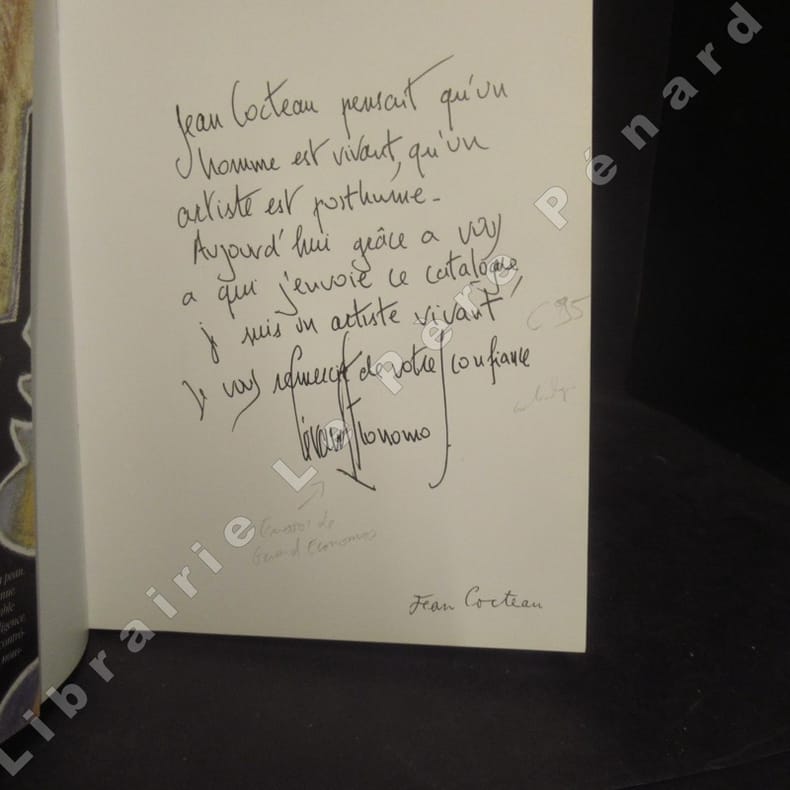 Jean Cocteau pensait qu'un
homme est vivant, qu'un
artiste est posthume -
Aujourd'hui grâce a vous
a qui j'envoie ce catalogue,
je suis un artiste vivant
Je vous remercie de votre confiance
Envoi de
Gérard Economos
Jean Cocteau
Librairie Le Père Pénard